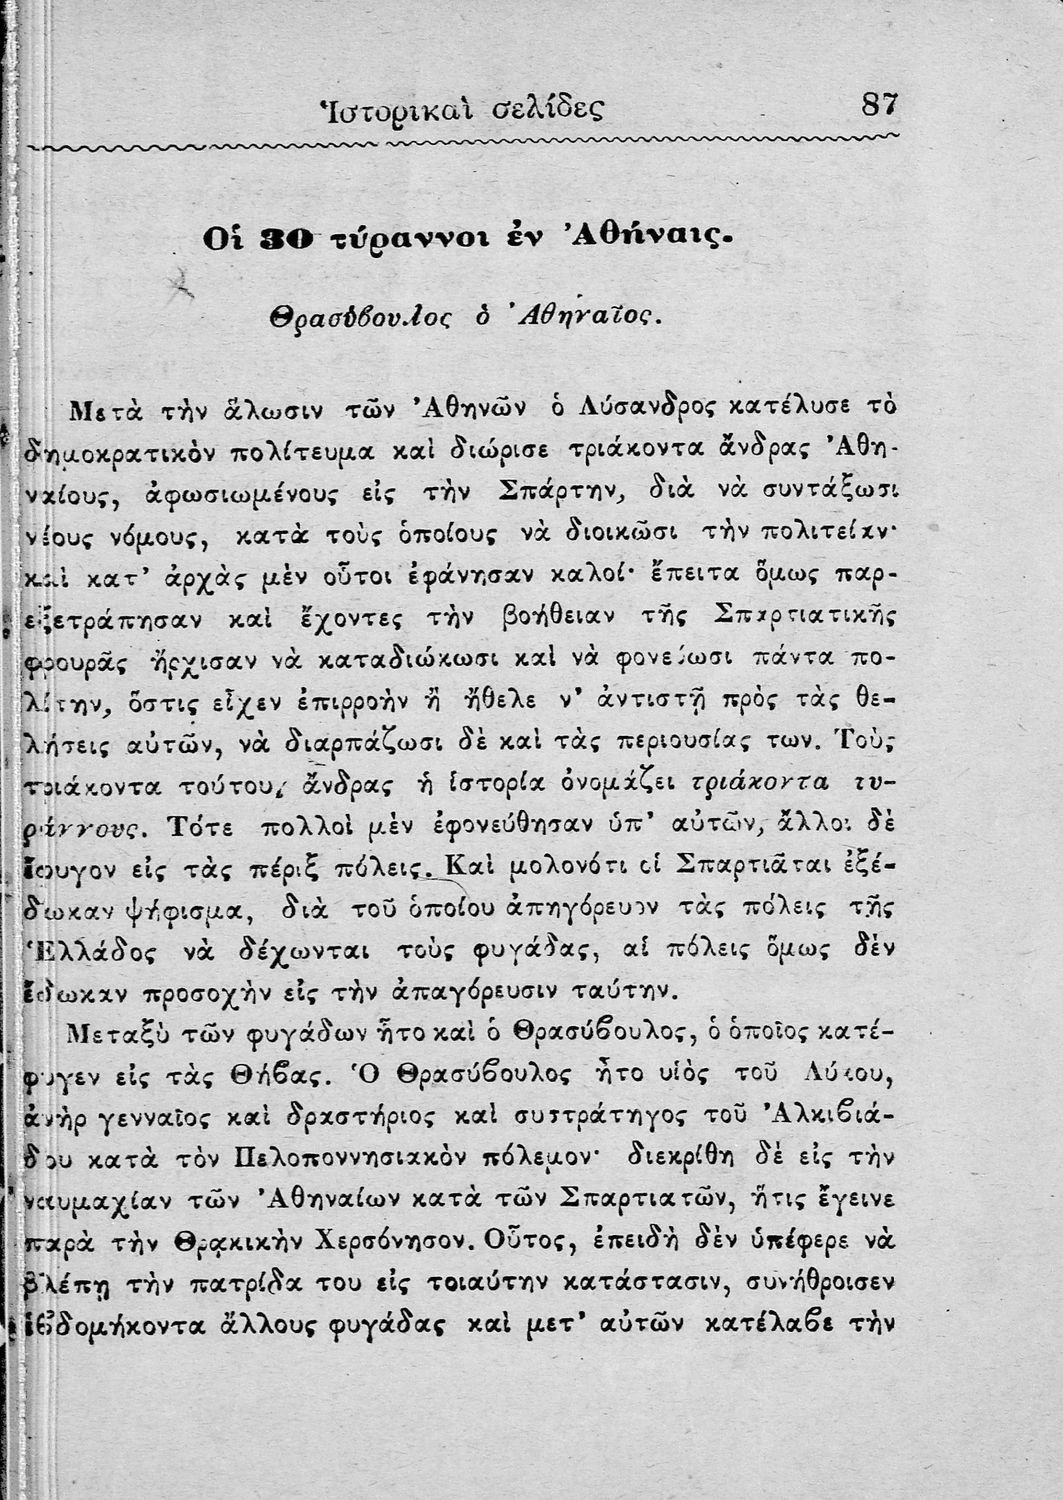 Ἱστορικαὶ σελίδες 87
Οἱ 30 τύραννοι ἐν Ἀθήναις.
Θρασύβουλος ὁ Ἀθηναῖος.
Μετὰ τὴν ἅλωσιν τῶν Ἀθηνῶν ὁ Λύσανδρος κατέλυσε τὸ
δημοκρατικὸν πολίτευμα καὶ διώρισε τριάκοντα ἄνδρας Ἀθη-
ναίους, ἀφωσιωμένους εἰς τὴν Σπάρτην, διὰ νὰ συντάξωσι
νέους νόμους, κατὰ τοὺς ὁποίους νὰ διοικῶσι τὴν πολιτείαν·
καὶ κατ' ἀρχὰς μὲν οὗτοι ἐφάνησαν καλοί· ἔπειτα ὅμως παρ-
εξετράπησαν καὶ ἔχοντες τὴν βοήθειαν τῆς Σπαρτιατικῆς
φρουρᾶς ἤρχισαν νὰ καταδιώκωσι καὶ νὰ φονεύωσι πάντα πο-
λίτην, ὅστις εἶχεν ἐπιρροὴν ἢ ἤθελε ν' ἀντιστῇ πρὸς τὰς θε-
λήσεις αὐτῶν, νὰ διαρπάζωσι δὲ καὶ τὰς περιουσίας των. Τοὺς
τριάκοντα τούτους ἄνδρας ἡ ἱστορία ὀνομάζει τριάκοντα τυ-
ράννους. Τότε πολλοὶ μὲν ἐφονεύθησαν ὑπ' αὐτῶν, ἄλλοι δὲ
ἔφυγον εἰς τὰς πέριξ πόλεις. Καὶ μολονότι οἱ Σπαρτιᾶται ἐξέ-
δωκαν ψήφισμα, διὰ τοῦ ὁποίου ἀπηγόρευον τὰς πόλεις τῆς
Ἑλλάδος νὰ δέχωνται τοὺς φυγάδας, αἱ πόλεις ὅμως δὲν
ἔδωκαν προσοχὴν εἰς τὴν ἀπαγόρευσιν ταύτην.
Μεταξὺ τῶν φυγάδων ἦτο καὶ ὁ Θρασύβουλος, ὁ ὁποῖος κατέ-
φυγεν εἰς τὰς Θήβας. Ὁ Θρασύβουλος ἦτο υἱὸς τοῦ Λύκου,
ἀνὴρ γενναῖος καὶ δραστήριος καὶ συστράτηγος τοῦ Ἀλκιβιά-
δου κατὰ τὸν Πελοποννησιακὸν πόλεμον· διεκρίθη δὲ εἰς τὴν
ναυμαχίαν τῶν Ἀθηναίων κατὰ τῶν Σπαρτιατῶν, ἥτις ἔγεινε
παρὰ τὴν Θρακικὴν Χερσόνησον. Οὗτος, ἐπειδὴ δὲν ὑπέφερε νὰ
βλέπῃ τὴν πατρίδα του εἰς τοιαύτην κατάστασιν, συνήθροισεν
ἑβδομήκοντα ἄλλους φυγάδας καὶ μετ' αὐτῶν κατέλαβε τὴν